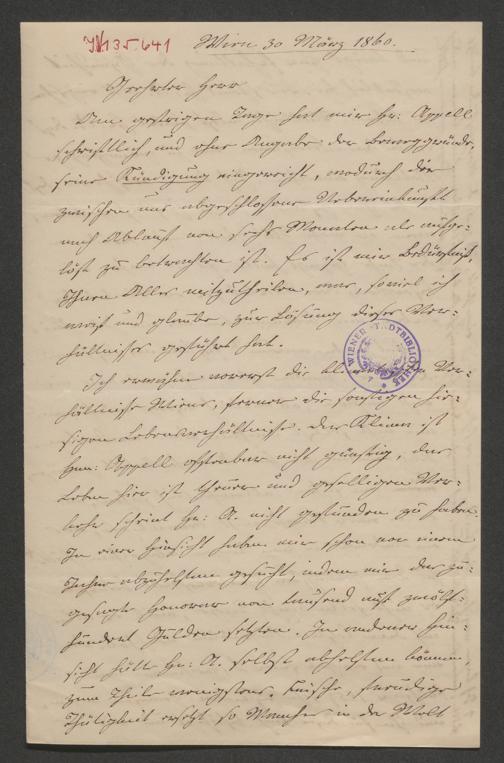 IN 135.641
Wien 30 März 1860.
Geehrter Herr
Am gestrigen Tage hat mir Hr: Appell
schriftlich, und ohne Angabe der Beweggründe,
seine Kündigung eingereicht, wodurch die
zwischen uns abgeschlossene Uebereinkunft
nach Ablauf von sechs Monaten als aufge-
löst zu betrachten ist. Es ist mir Bedürfniß,
Ihnen Alles mitzutheilen, was, soviel ich
weiß und glaube, zur Lösung dieses Ver-
hältnisses geführt hat.
Ich erwähne vorerst die klimatischen Ver-
hältnisse Wiens, ferner die sonstigen hie-
sigen Lebensverhältnisse. Das Klima ist
Hrn: Appell offenbar nicht günstig, das
Leben hier ist theuer und geselligen Ver-
kehr scheint Hr: A. nicht gefunden zu haben.
In einer Hinsicht haben wir schon vor einem
Jahre abzuhelfen gesucht, indem wir das zu-
gesagte Honorar von tausend auf zwölf-
hundert Gulden setzten. In anderer Hin-
sicht hätte Hr: A. selbst abhelfen können,
zum Theile wenigstens. frische, freudige
Thätigkeit ersetzt so Manches in der Welt
WIENER STADTBIBLIOTHEK